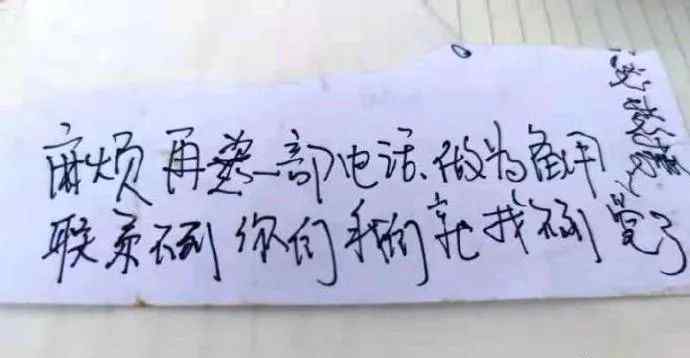 麻烦再装一部电话、做为备用
联系不到你们我们就找不到了